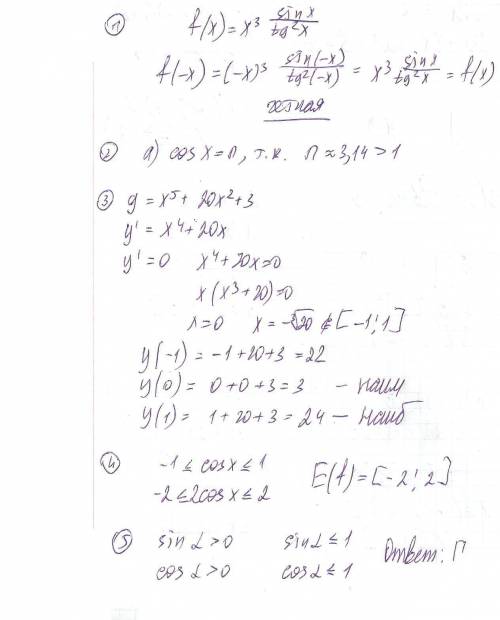 ① f(x) = x³ sin x / tg²x
f(-x) = (-x)³ sin(-x) / tg²(-x) = x³ sin x / tg²x = f(x)
чётная
② а) cos x = π, т.к. π ≈ 3,14 > 1
③ y = x⁵ + 20x² + 3
y' = x⁴ + 20x
y' = 0 x⁴ + 20x = 0
x(x³ + 20) = 0
x = 0 x = -∛20 ∉ [-1; 1]
y(-1) = -1 + 20 + 3 = 22
y(0) = 0 + 0 + 3 = 3 — наим
y(1) = 1 + 20 + 3 = 24 — наиб
④ -1 ≤ cos x ≤ 1 E(f) = [-2; 2]
-2 ≤ 2cos x ≤ 2
⑤ sin α > 0 sin α ≤ 1 Ответ: Г
cos α > 0 cos α ≤ 1